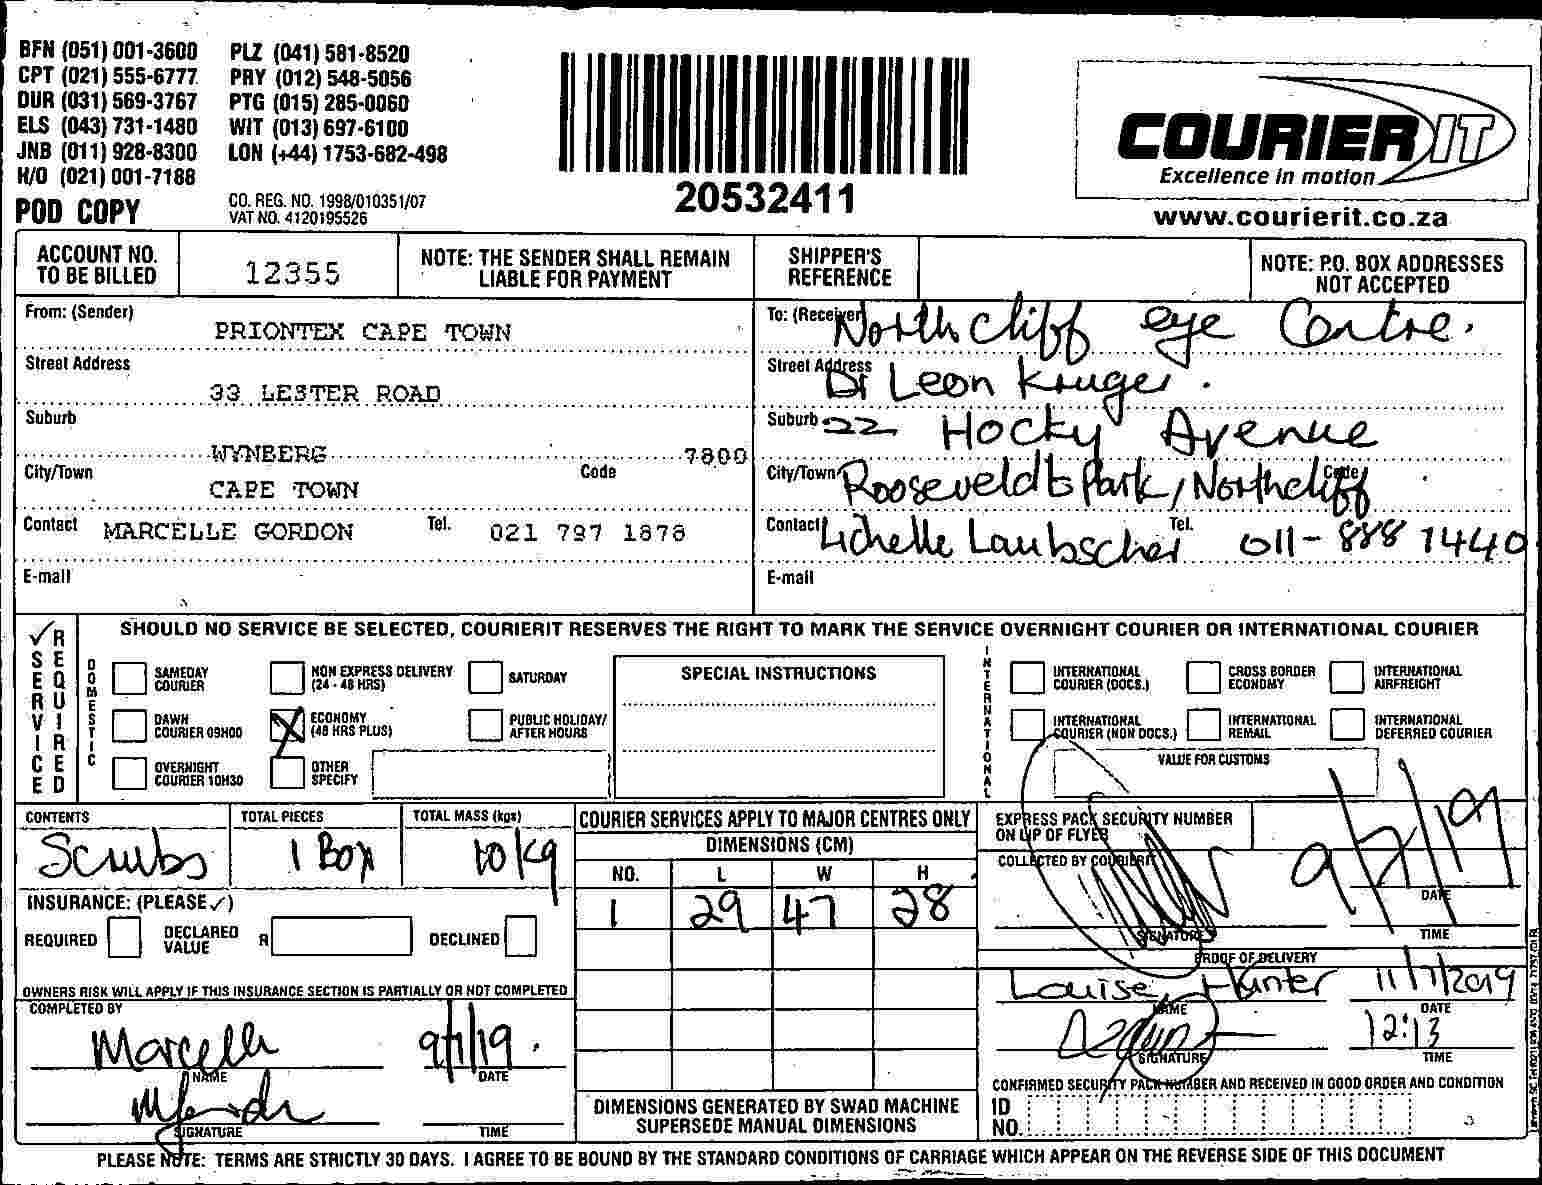 BFN (051) 001-3600 PLZ (041) 581-8520
CPT (021) 555-6777 PRY (012) 548-5056
DUR (031) 569-3767 PTG (015) 285-0060
ELS (043) 731-1480 WIT (013) 697-6100
JNB (011) 928-8300 LON (+44) 1753-682-498
H/O (021) 001-7188
POD COPY
CO. REG. NO. 1998/010351/07
VAT NO. 4120195526
20532411
COURIER IT
Excellence in motion
www.courierit.co.za
ACCOUNT NO. TO BE BILLED 12355
NOTE: THE SENDER SHALL REMAIN LIABLE FOR PAYMENT
SHIPPER'S REFERENCE
NOTE: P.O. BOX ADDRESSES NOT ACCEPTED
From: (Sender) PRIONTEX CAPE TOWN
Street Address 33 LESTER ROAD
Suburb WYNBERG 7800
City/Town CAPE TOWN Code
Contact MARCELLE GORDON Tel. 021 797 1878
E-mail
To: (Receiver) Northcliff eye Centre.
Street Address Dr Leon Kruger.
Suburb 22 Hocky Avenue
City/Town Rooseveldts Park, Northcliff Code
Contact Lichelle Laubscher Tel. 011-888 1440
E-mail
✓ SERVICE REQUIRED
SHOULD NO SERVICE BE SELECTED, COURIERIT RESERVES THE RIGHT TO MARK THE SERVICE OVERNIGHT COURIER OR INTERNATIONAL COURIER
DOMESTIC
SAMEDAY COURIER
NON EXPRESS DELIVERY (24 - 48 HRS)
SATURDAY
DAWN COURIER 09H00
X ECONOMY (48 HRS PLUS)
PUBLIC HOLIDAY/ AFTER HOURS
OVERNIGHT COURIER 10H30
OTHER SPECIFY
SPECIAL INSTRUCTIONS
INTERNATIONAL
INTERNATIONAL COURIER (DOCS.)
CROSS BORDER ECONOMY
INTERNATIONAL AIRFREIGHT
INTERNATIONAL COURIER (NON DOCS.)
INTERNATIONAL REMAIL
INTERNATIONAL DEFERRED COURIER
VALUE FOR CUSTOMS
CONTENTS Scrubs
TOTAL PIECES 1 Box
TOTAL MASS (kgs) 10kg
INSURANCE: (PLEASE ✓)
REQUIRED DECLARED VALUE R DECLINED
OWNERS RISK WILL APPLY IF THIS INSURANCE SECTION IS PARTIALLY OR NOT COMPLETED
COMPLETED BY
Marcelle 9/7/19.
NAME DATE
SIGNATURE TIME
COURIER SERVICES APPLY TO MAJOR CENTRES ONLY
DIMENSIONS (CM)
NO. L W H
1 29 47 28
DIMENSIONS GENERATED BY SWAD MACHINE SUPERSEDE MANUAL DIMENSIONS
EXPRESS PACK SECURITY NUMBER ON LIP OF FLYER
COLLECTED BY COURIERIT
9/7/19
DATE
SIGNATURE TIME
PROOF OF DELIVERY
Louise Hunter 11/7/2019
NAME DATE
12:13
SIGNATURE TIME
CONFIRMED SECURITY PACK NUMBER AND RECEIVED IN GOOD ORDER AND CONDITION
ID NO.
PLEASE NOTE: TERMS ARE STRICTLY 30 DAYS. I AGREE TO BE BOUND BY THE STANDARD CONDITIONS OF CARRIAGE WHICH APPEAR ON THE REVERSE SIDE OF THIS DOCUMENT